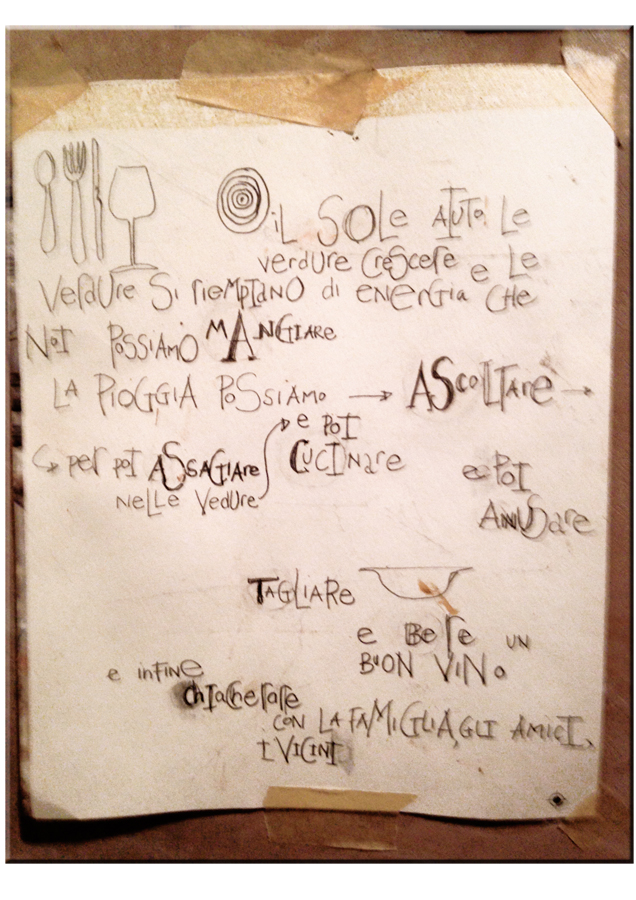 iL SOLe AIUTA Le
verdURe CreSCeRe e Le
VerdURe Si rieMPIaNO di eNerGia CHe
NOI POSSIAMO MANGIARe
LA PIOGGIA POSSiAMO → ASCOLTAre →
→ per POI ASSAGIARe
NeLLe Vedure
e POI
CUCINAre
e POI
ANNUSare
TAGLIARe
e Bere UN
BUON VINO
e inFINe
CHIACHerare
CON LA FAMIGLIA, GLI AMICI,
I VICINI